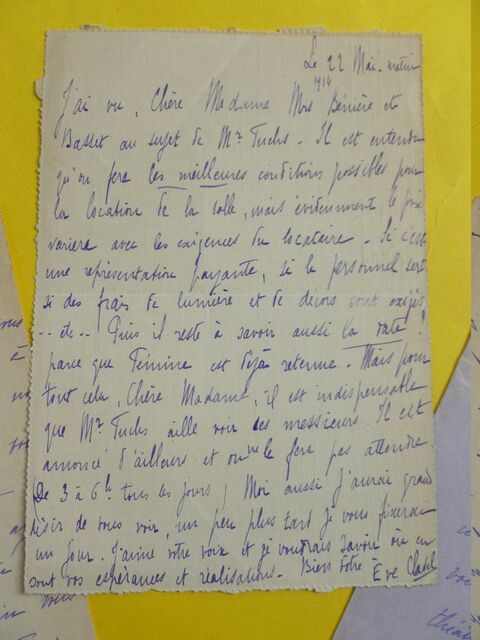 Le 22 Mai - matin
1914
J'ai vu, Chère Madame Mrs Bénière et
Basset au sujet de Mr Fuchs - Il est entendu
qu'on fera les meilleures conditions possibles pour
la location de la salle, mais évidemment, le prix
variera avec les exigences du locataire - Si c'est
une représentation payante, si le personnel sert
si des frais de lumière et de décors sont exigés
-- etc -- Puis il reste à savoir aussi la date !
parce que Fémina est déjà retenue - Mais pour
tout cela, Chère Madame, il est indispensable
que Mr Fuchs aille voir ces messieurs. Il est
annoncé d'ailleurs et on ne le fera pas attendre
(De 3 à 6h tous les jours) Moi aussi j'aurai grand
désir de vous voir, un peu plus tard je vous fixerai
un jour. J'aime votre voix et je voudrais savoir où en
sont vos espérances et réalisations - Bien vôtre